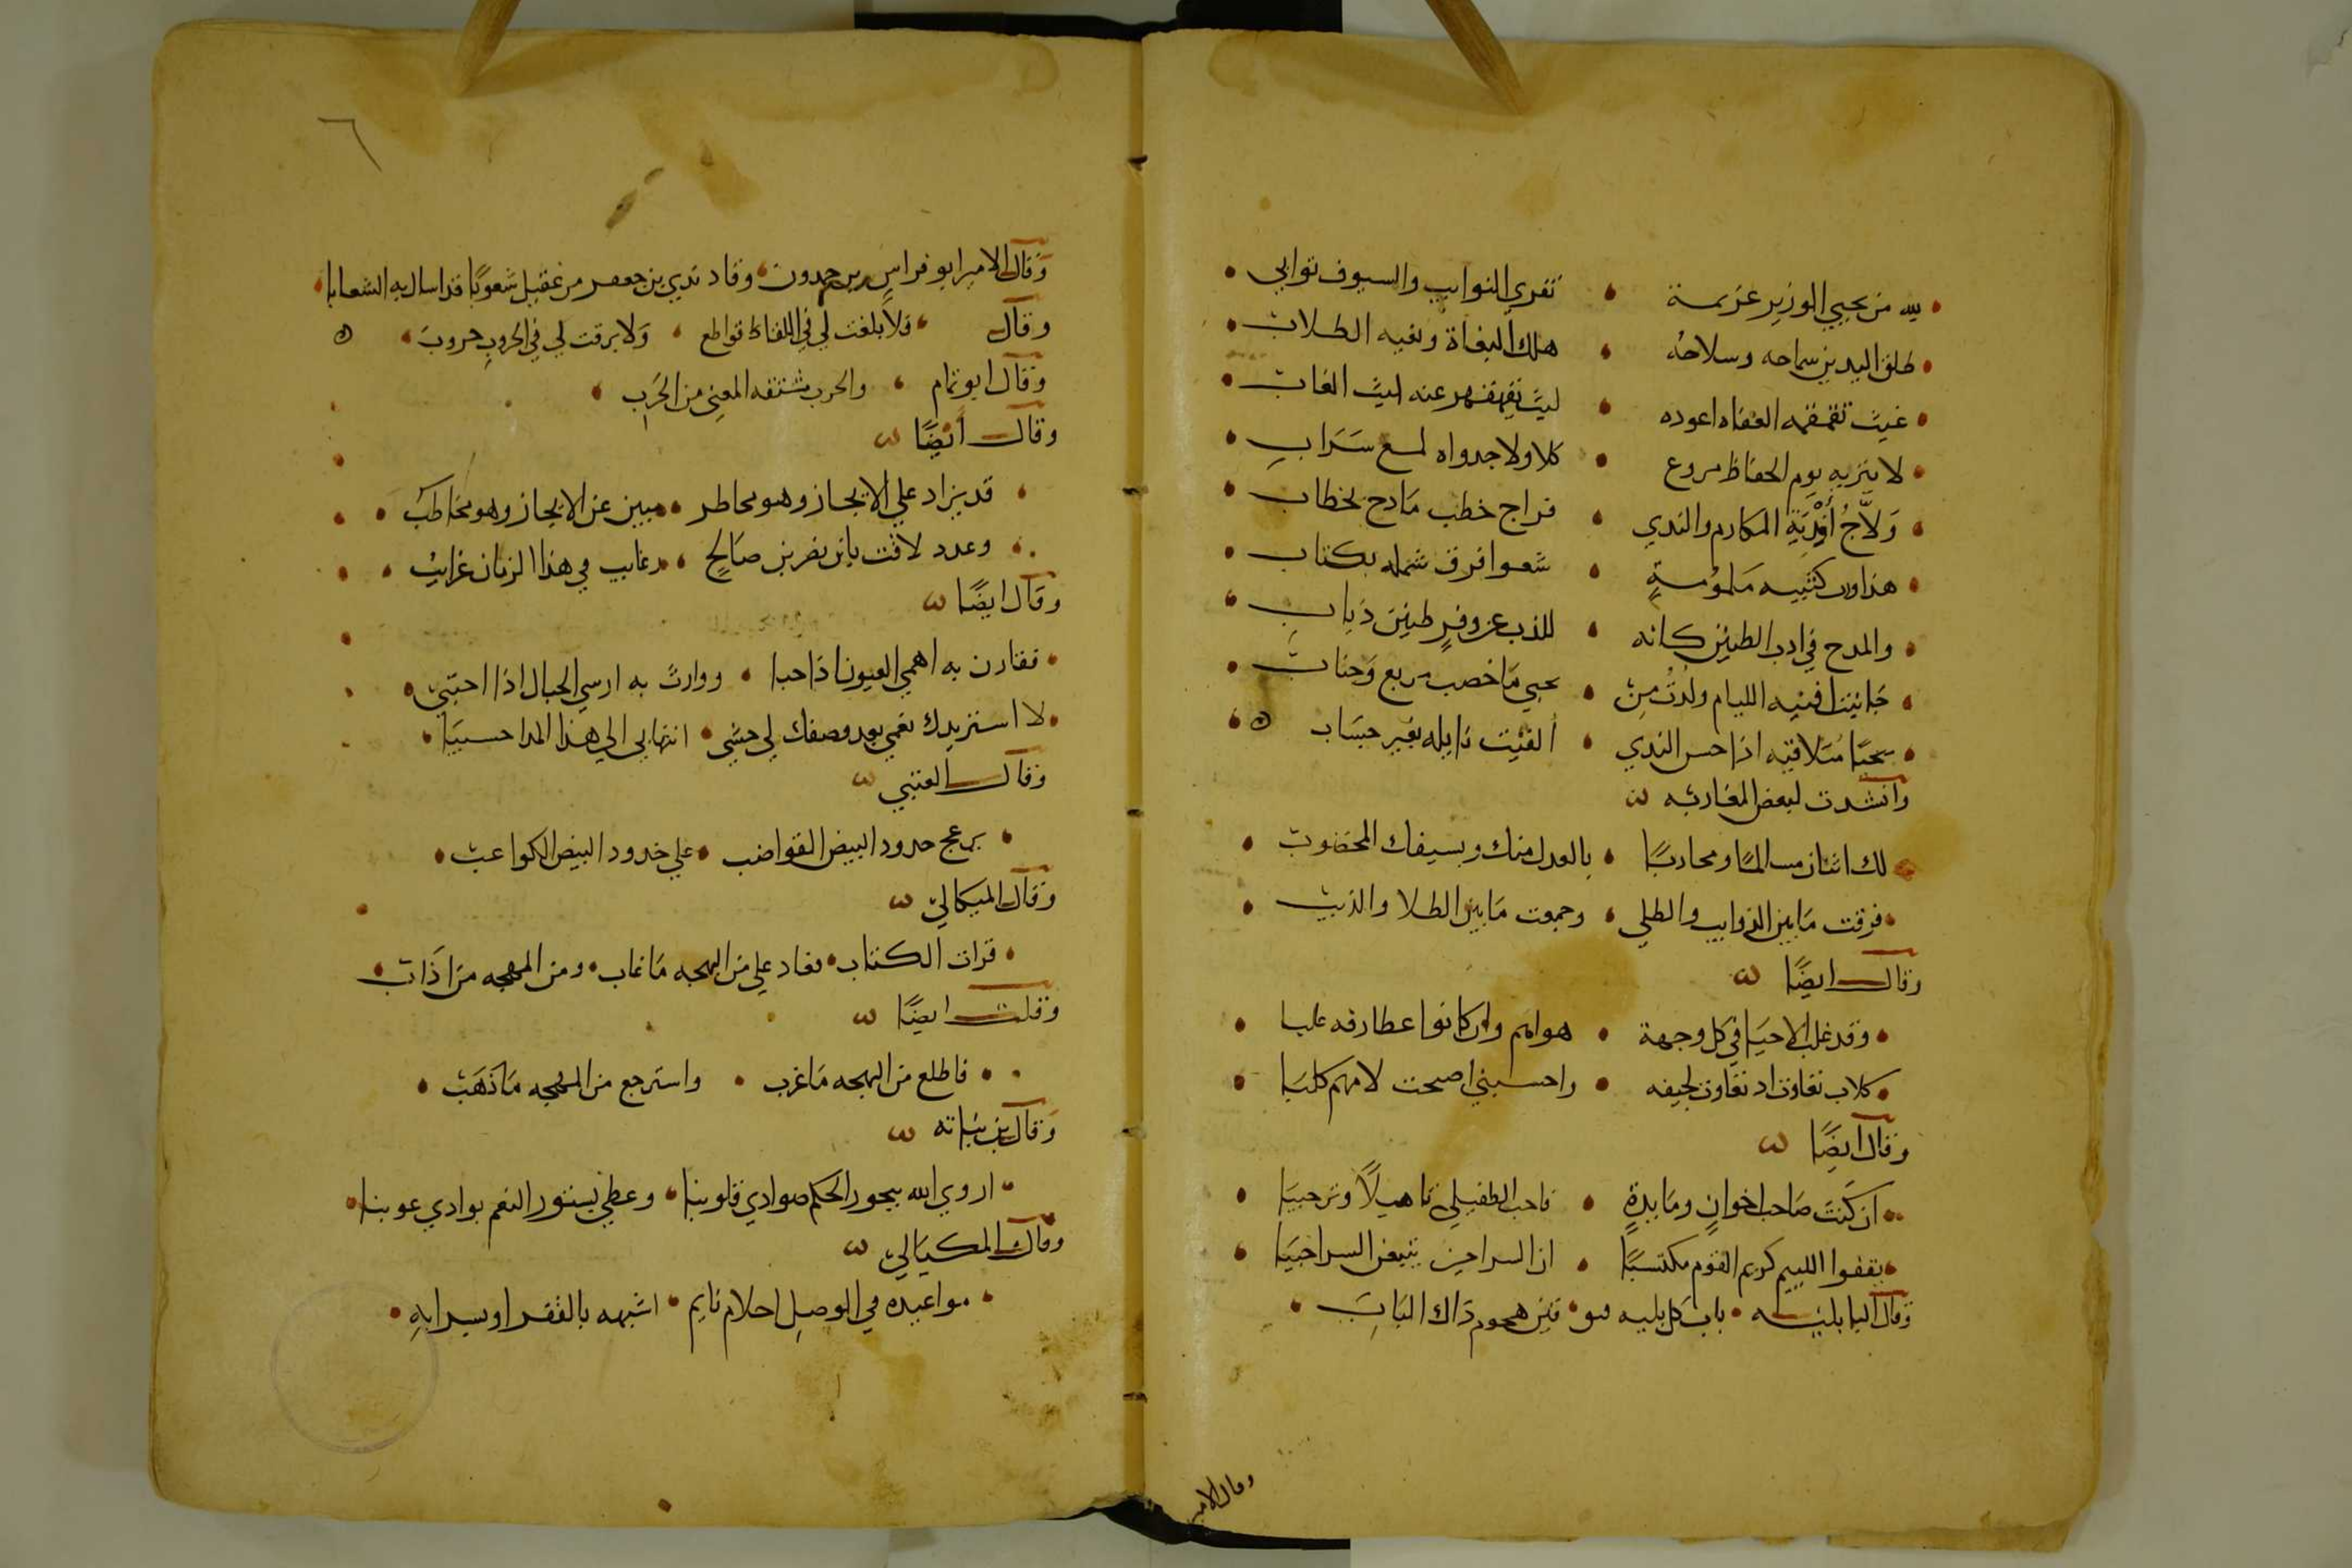 لله من يحيي الوزير عزيمة • تفري النوايب والسيوف نوابي
طلق اليدين سماحه وسلاحه • هلك البغاة وبغيه الطلاب
غيث العفاه اعوده • ليث تقهقهر عنه ليث الغاب
لا يوم الحفاظ مروع • كلا ولا جدواه لمع سراب
ولاج اندية المكارم والندي • فراج خطب مادح بخطاب
هذا ورب كتيبه ملمومة • شعوا فرق شمله بكتاب
والمدح في ادب الطنين كانه • طنين ذباب
الليام ولدت من • يحيي ما خصب مربع وجناب
متلاقيه اذا حس الندي • الفيت نايله بغير حساب
وانشدت لبعض المغاربه
لك اثنان مسالما ومحاربا • بالعدل منك وبسيفك المخضوب
فرقت مابين الذوايب والطلي • وجمعت مابين الطلا والذيب
وقال ايضا
وقد غلب الاحيا في كل وجهة • هوامم وان كانوا عطارفه علبا
كلاب تعاوت اد تعاوت لجيفه • واحسبني اصبحت لامهم كلبا
وقال ايضا
ان كنت صاحب اخوان ومايدة • فاحب الطفيلي تاهيلا وترحيبا
يقفوا الليم كريم القوم مكتسبا • ان السراحين يتبعن السراحيبا
وقال • باب كل بليه • هجوم ذاك الباب
وقال الامير
٦
وقال الامير ابو فراس بن حمدون • وقاد ندي بن جعفر من عقيل شعوبا قد اسال به الشعابا
وقال • فلا بلغت لي في اللفاظ قواطع • ولا برقت لي في الحروب حروب
وقال ابو تمام • والحرب مشتقه المعني من الحرب
وقال ايضا
قد يزاد علي الايجاز وهو مخاطر • مبين عن الايجاز وهو مخاطب
وعدد لافت يا بن نصر بن صالح • رغايب في هذا الزمان غرايب
وقال ايضا
تقارن به اهمي العيون اذا حبا • ووارث به ارسي الجبال اذا احتبي
لا استزيدك نعمي بعد وصفك لي حسبي • انتهايي الي هذا المدا حسبا
وقال العتبي
حدود البيض القواضب • علي خدود البيض الكواعب
وقال الميكالي
قرات الكتاب • فعاد علي من البهجه ما غاب • ومن المهجه ما ذاب
وقلت ايضا
فاطلع من البهجه ما غرب • واسترجع من المهجه ما ذهب
وقال بن نباته
اروي الله ببحور الحكم صوادي قلوبنا • وغطي بستور النعم بوادي عيوبنا
وقال المكيالي
مواعيده في الوصل احلام نايم • اشبهه بالقفر او بسرابه